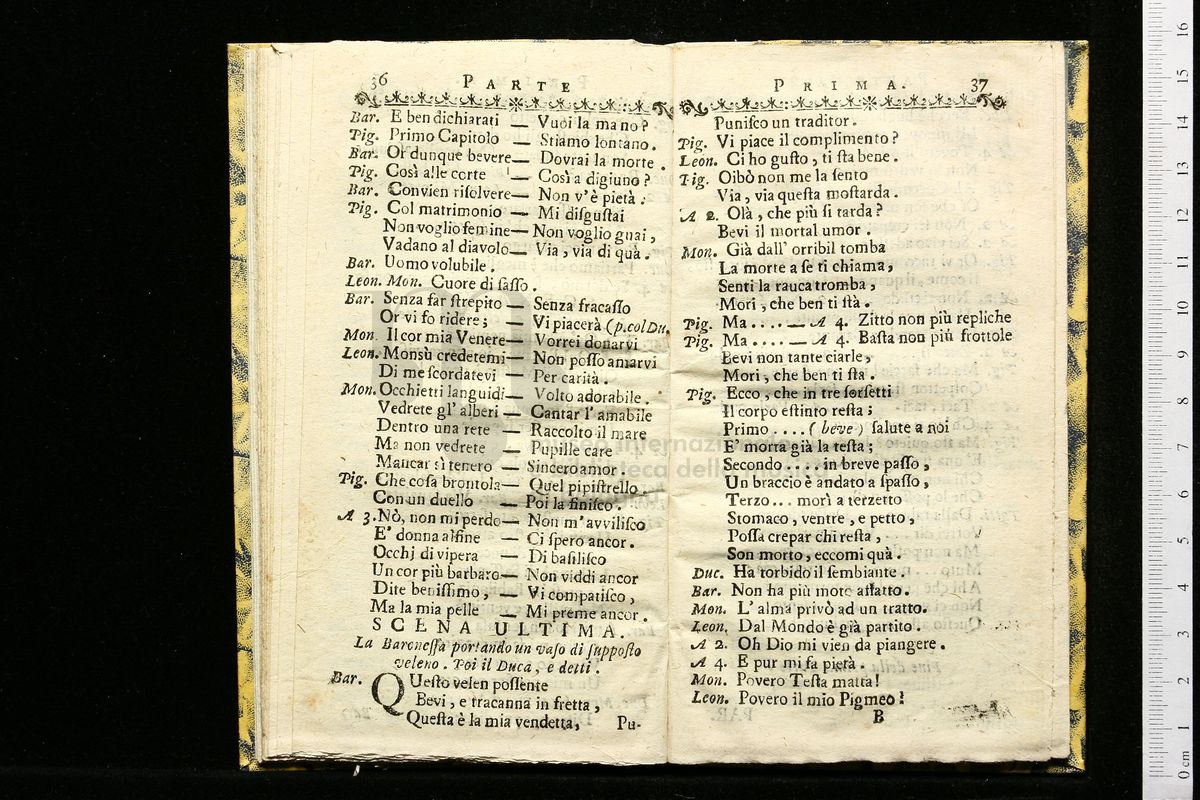 36 PARTE
Bar. E ben dichiarati — Vuoi la mano?
Pig. Primo Capitolo — Stiamo lontano.
Bar. Or dunque bevere — Dovrai la morte.
Pig. Così alle corte — Così a digiuno?
Bar. Convien riſolvere — Non v'è pietà.
Pig. Col matrimonio — Mi diſguſtai
Non voglio femine — Non voglio guai,
Vadano al diavolo — Via, via di quà.
Bar. Uomo volubile.
Leon. Mon. Cuore di ſaſſo.
Bar. Senza far ſtrepito — Senza fracaſſo
Or vi fo ridere; — Vi piacerà (p.col Du.
Mon. Il cor mia Venere — Vorrei donarvi
Leon. Monsù credetemi — Non poſſo amarvi
Di me ſcordatevi — Per carità.
Mon. Occhietti languidi — Volto adorabile.
Vedrete gl' alberi — Cantar l' amabile
Dentro una rete — Raccolto il mare
Ma non vedrete — Pupille care
Mancar sì tenero — Sincero amor.
Pig. Che coſa brontola — Quel pipiſtrello.
Con un duello — Poi la finiſco.
A 3. Nò, non mi perdo — Non m'avviliſco
E' donna alfine — Ci ſpero ancor.
Occhj di vipera — Di baſiliſco
Un cor più barbaro — Non viddi ancor
Dite beniſſimo, — Vi compatiſco,
Ma la mia pelle — Mi preme ancor.
SCENA ULTIMA.
La Baroneſſa portando un vaſo di ſuppoſto
veleno. Poi il Duca, e detti.
Bar. QUeſto velen poſſente
Bevi, e tracanna in fretta,
Queſta è la mia vendetta, Pu-
PRIMA. 37
Puniſco un traditor.
Pig. Vi piace il complimento?
Leon. Ci ho guſto, ti ſta bene.
Pig. Oibò non me la ſento
Via, via queſta moſtarda.
A 2. Olà, che più ſi tarda?
Bevi il mortal umor.
Mon. Già dall' orribil tomba
La morte a ſe ti chiama,
Senti la rauca tromba,
Mori, che ben ti ſtà.
Pig. Ma .... — A 4. Zitto non più repliche
Pig. Ma .... — A 4. Baſta non più frottole
Bevi non tante ciarle,
Mori, che ben ti ſta.
Pig. Ecco, che in tre ſorſetti
Il corpo eſtinto reſta;
Primo .... (beve) ſalute a noi
E' morra già la teſta;
Secondo .... in breve paſſo,
Un braccio è andato a ſpaſſo,
Terzo... morì a terzetto
Stomaco, ventre, e petto,
Poſſa crepar chi reſta,
Son morto, eccomi quà.
Duc. Ha torbido il ſembiante.
Bar. Non ha più moto affatto.
Mon. L' alma privò ad un tratto.
Leon. Dal Mondo è già partito.
A 2. Oh Dio mi vien da piangere.
A 4. E pur mi fa pietà.
Mon. Povero Teſta matta!
Leon. Povero il mio Pigmeo!
B
museo internazionale
e biblioteca della musica
0 cm 1 2 3 4 5 6 7 8 9 10 11 12 13 14 15 16